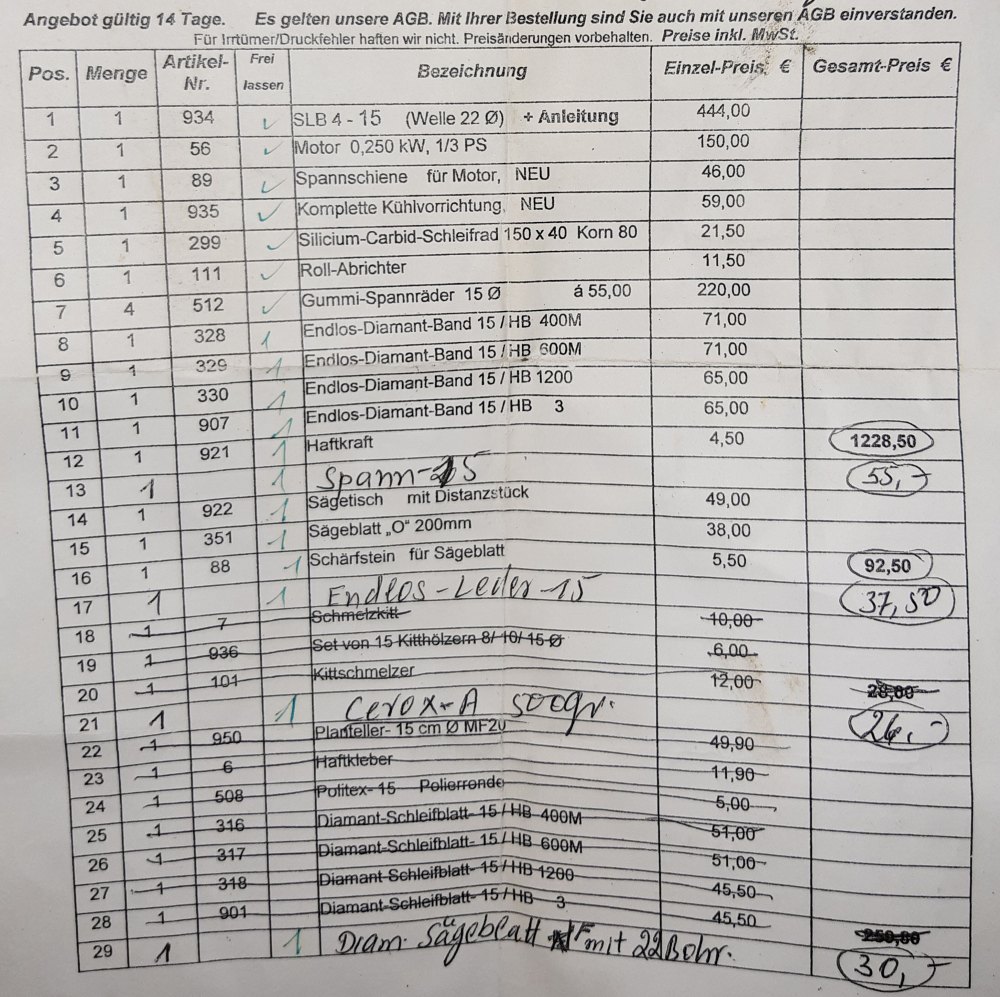 Angebot gültig 14 Tage. Es gelten unsere AGB. Mit Ihrer Bestellung sind Sie auch mit unseren AGB einverstanden.
Für Irrtümer/Druckfehler haften wir nicht. Preisänderungen vorbehalten. Preise inkl. MwSt.
Pos. Menge Artikel-Nr. Frei lassen Bezeichnung Einzel-Preis € Gesamt-Preis €
1 1 934 ✓ SLB 4 - 15 (Welle 22 Ø) + Anleitung 444,00
2 1 56 ✓ Motor 0,250 kW, 1/3 PS 150,00
3 1 89 ✓ Spannschiene für Motor, NEU 46,00
4 1 935 ✓ Komplette Kühlvorrichtung, NEU 59,00
5 1 299 ✓ Silicium-Carbid-Schleifrad 150 x 40 Korn 80 21,50
6 1 111 ✓ Roll-Abrichter 11,50
7 4 512 ✓ Gummi-Spannräder 15 Ø á 55,00 220,00
8 1 328 1 Endlos-Diamant-Band 15 / HB 400M 71,00
9 1 329 1 Endlos-Diamant-Band 15 / HB 600M 71,00
10 1 330 1 Endlos-Diamant-Band 15 / HB 1200 65,00
11 1 907 1 Endlos-Diamant-Band 15 / HB 3 65,00
12 1 921 1 Haftkraft 4,50 1228,50
13 1 1 Spann-15 55,-
14 1 922 1 Sägetisch mit Distanzstück 49,00
15 1 351 1 Sägeblatt „O" 200mm 38,00
16 1 88 1 Schärfstein für Sägeblatt 5,50 92,50
17 1 1 Endlos-Leder-15 37,50
18 1 7 Schmelzkitt 10,00
19 1 936 Set von 15 Kitthölzern 8/ 10/ 15 Ø 6,00
20 1 101 Kittschmelzer 12,00 28,00
21 1 1 Cerox-A 500gr. 26,-
22 1 950 Planteller- 15 cm Ø MF20 49,90
23 1 6 Haftkleber 11,90
24 1 508 Politex- 15 Polierronde 5,00
25 1 316 Diamant-Schleifblatt- 15 / HB 400M 51,00
26 1 317 Diamant-Schleifblatt- 15 / HB 600M 51,00
27 1 318 Diamant-Schleifblatt- 15 / HB 1200 45,50
28 1 901 Diamant-Schleifblatt- 15 / HB 3 45,50
29 1 1 Diam. Sägeblatt mit 22 Bohr. 30,-